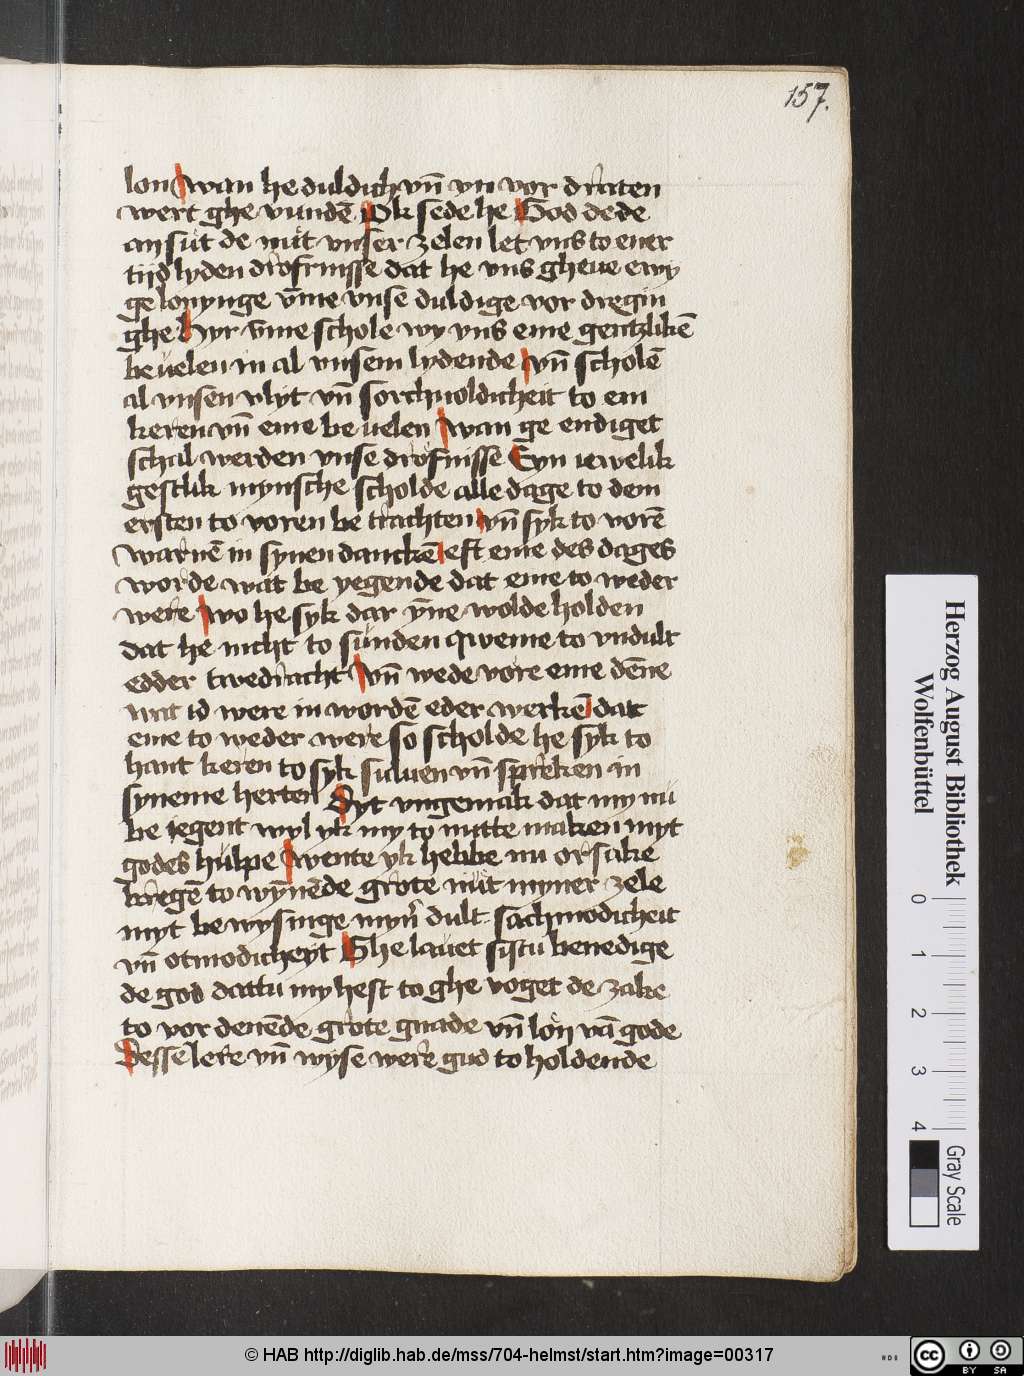 157.
lon wan he duldich vn̄ vn vor draten
wert ghe vundē Ok sede he God de de
an süt de nüt vnser zelen let vns to ener
tijd lyden drofnisse dat he vns gheue ewy
ge lonynge v̄me vnse duldige vor dregin
ghe Hyr v̄me schole wy vns eme gentzlikē
beuelen in al vnsem lydende vn̄ scholē
al vnsen vlyt vn̄ sorchuoldicheit to em
keren vn̄ eme be uelen wan ge endiget
schal werden vnse drofnisse Eyn iewelik
gestlik mynsche scholde alle dage to dem
ersten to voren be trachten vn̄ syk to vorē
warnē in synen danckē eft eme des dages
worde wat be yegende dat eme to weder
were wo he syk dar ȳne wolde holden
dat he nicht to sunden qweme to vndult
edder twedracht vn̄ wede vore eme dēne
wat id were in wordē eder werkē dat
eme to weder were so scholde he syk to
hant keren to syk suluen vn̄ spreken in
syneme herten Dyt vngemak dat my nu
be iegent wyl yk my to nutte maken myt
godes hulpe wente yk hebbe nu orsake
kregē to wȳnēde grote nüt myner zele
myt be wysinge myn̄ dult sachmodicheit
vn̄ otmodicheyt Ghe lauet sistu benedige
de god dattu my hest to ghe voget de zake
to vor denēde grote gnade vn̄ lon vā gode
Desse lere vn̄ wyse were gud to holdende
Herzog August Bibliothek
Wolfenbüttel
0 1 2 3 4
Gray Scale
© HAB http://diglib.hab.de/mss/704-helmst/start.htm?image=00317
HAB
cc BY SA